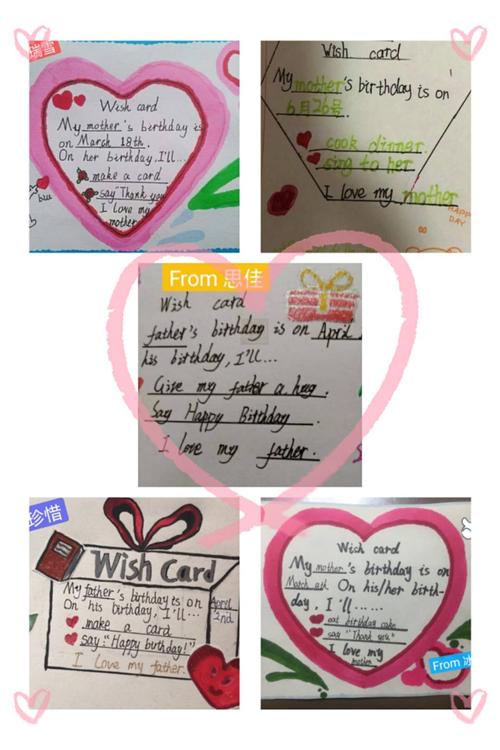 瑞雪
Wish card
My mother's birthday is
on March 18th.
On her birthday, I'll...
make a card
say "Thank you
I love my
mother
Wish card
My mother's birthday is on
6月26号.
cook dinner
sing to her
I love my mother
HAPPY
DAY
From 思佳
Wish card
father's birthday is on April
his birthday, I'll...
Give my father a hug.
Say Happy Birthday.
I love my father.
珍惜
Wish Card
My father's birthday is on April
2nd
On his birthday, I'll...
make a card
say: "Happy birthday!"
I love my father.
Wish card
My mother's birthday is on
March 8th. On his/her birth-
day, I'll......
eat birthday cake
say "Thank you"
I love my
mother
From 冰